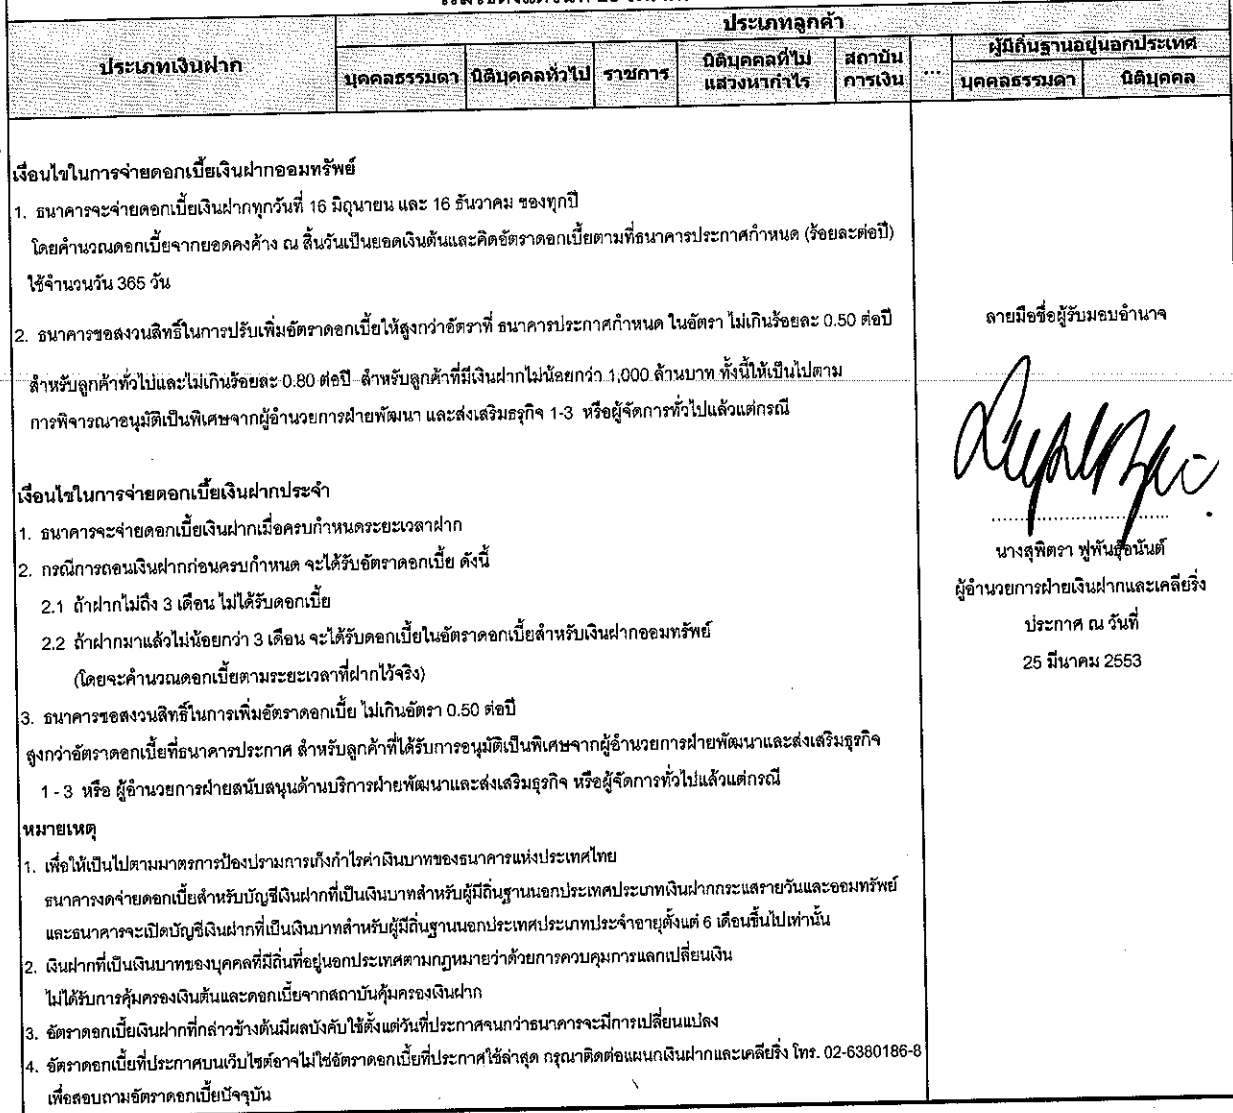 ประเภทลูกค้า
ประเภทเงินฝาก
บุคคลธรรมดา นิติบุคคลทั่วไป ราชการ นิติบุคคลที่ไม่แสวงหากำไร สถาบันการเงิน ... ผู้มีถิ่นฐานอยู่นอกประเทศ
บุคคลธรรมดา นิติบุคคล
เงื่อนไขในการจ่ายดอกเบี้ยเงินฝากออมทรัพย์
1. ธนาคารจะจ่ายดอกเบี้ยเงินฝากทุกวันที่ 16 มิถุนายน และ 16 ธันวาคม ของทุกปี
โดยคำนวณดอกเบี้ยจากยอดคงค้าง ณ สิ้นวันเป็นยอดเงินต้นและคิดอัตราดอกเบี้ยตามที่ธนาคารประกาศกำหนด (ร้อยละต่อปี)
ใช้จำนวนวัน 365 วัน
2. ธนาคารขอสงวนสิทธิ์ในการปรับเพิ่มอัตราดอกเบี้ยให้สูงกว่าอัตราที่ ธนาคารประกาศกำหนด ในอัตรา ไม่เกินร้อยละ 0.50 ต่อปี
สำหรับลูกค้าทั่วไปและไม่เกินร้อยละ 0.80 ต่อปี สำหรับลูกค้าที่มีเงินฝากไม่น้อยกว่า 1,000 ล้านบาท ทั้งนี้ให้เป็นไปตาม
การพิจารณาอนุมัติเป็นพิเศษจากผู้อำนวยการฝ่ายพัฒนา และส่งเสริมธุรกิจ 1-3 หรือผู้จัดการทั่วไปแล้วแต่กรณี
เงื่อนไขในการจ่ายดอกเบี้ยเงินฝากประจำ
1. ธนาคารจะจ่ายดอกเบี้ยเงินฝากเมื่อครบกำหนดระยะเวลาฝาก
2. กรณีการถอนเงินฝากก่อนครบกำหนด จะได้รับอัตราดอกเบี้ย ดังนี้
2.1 ถ้าฝากไม่ถึง 3 เดือน ไม่ได้รับดอกเบี้ย
2.2 ถ้าฝากมาแล้วไม่น้อยกว่า 3 เดือน จะได้รับดอกเบี้ยในอัตราดอกเบี้ยสำหรับเงินฝากออมทรัพย์
(โดยจะคำนวณดอกเบี้ยตามระยะเวลาที่ฝากไว้จริง)
3. ธนาคารขอสงวนสิทธิ์ในการเพิ่มอัตราดอกเบี้ย ไม่เกินอัตรา 0.50 ต่อปี
สูงกว่าอัตราดอกเบี้ยที่ธนาคารประกาศ สำหรับลูกค้าที่ได้รับการอนุมัติเป็นพิเศษจากผู้อำนวยการฝ่ายพัฒนาและส่งเสริมธุรกิจ
1 - 3 หรือ ผู้อำนวยการฝ่ายสนับสนุนด้านบริการฝ่ายพัฒนาและส่งเสริมธุรกิจ หรือผู้จัดการทั่วไปแล้วแต่กรณี
หมายเหตุ
1. เพื่อให้เป็นไปตามมาตรการป้องปรามการเก็งกำไรค่าเงินบาทของธนาคารแห่งประเทศไทย
ธนาคารงดจ่ายดอกเบี้ยสำหรับบัญชีเงินฝากที่เป็นเงินบาทสำหรับผู้มีถิ่นฐานนอกประเทศประเภทเงินฝากกระแสรายวันและออมทรัพย์
และธนาคารจะเปิดบัญชีเงินฝากที่เป็นเงินบาทสำหรับผู้มีถิ่นฐานนอกประเทศประเภทประจำอายุตั้งแต่ 6 เดือนขึ้นไปเท่านั้น
2. เงินฝากที่เป็นเงินบาทของบุคคลที่มีถิ่นที่อยู่นอกประเทศตามกฎหมายว่าด้วยการควบคุมการแลกเปลี่ยนเงิน
ไม่ได้รับการคุ้มครองเงินต้นและดอกเบี้ยจากสถาบันคุ้มครองเงินฝาก
3. อัตราดอกเบี้ยเงินฝากที่กล่าวข้างต้นมีผลบังคับใช้ตั้งแต่วันที่ประกาศจนกว่าธนาคารจะมีการเปลี่ยนแปลง
4. อัตราดอกเบี้ยที่ประกาศบนเว็บไซต์อาจไม่ใช่อัตราดอกเบี้ยที่ประกาศใช้ล่าสุด กรุณาติดต่อแผนกเงินฝากและเคลียริ่ง โทร. 02-6380186-8
เพื่อสอบถามอัตราดอกเบี้ยปัจจุบัน
ลายมือชื่อผู้รับมอบอำนาจ
นางสุพิตรา ฟูพันธุ์อนันต์
ผู้อำนวยการฝ่ายเงินฝากและเคลียริ่ง
ประกาศ ณ วันที่
25 มีนาคม 2553